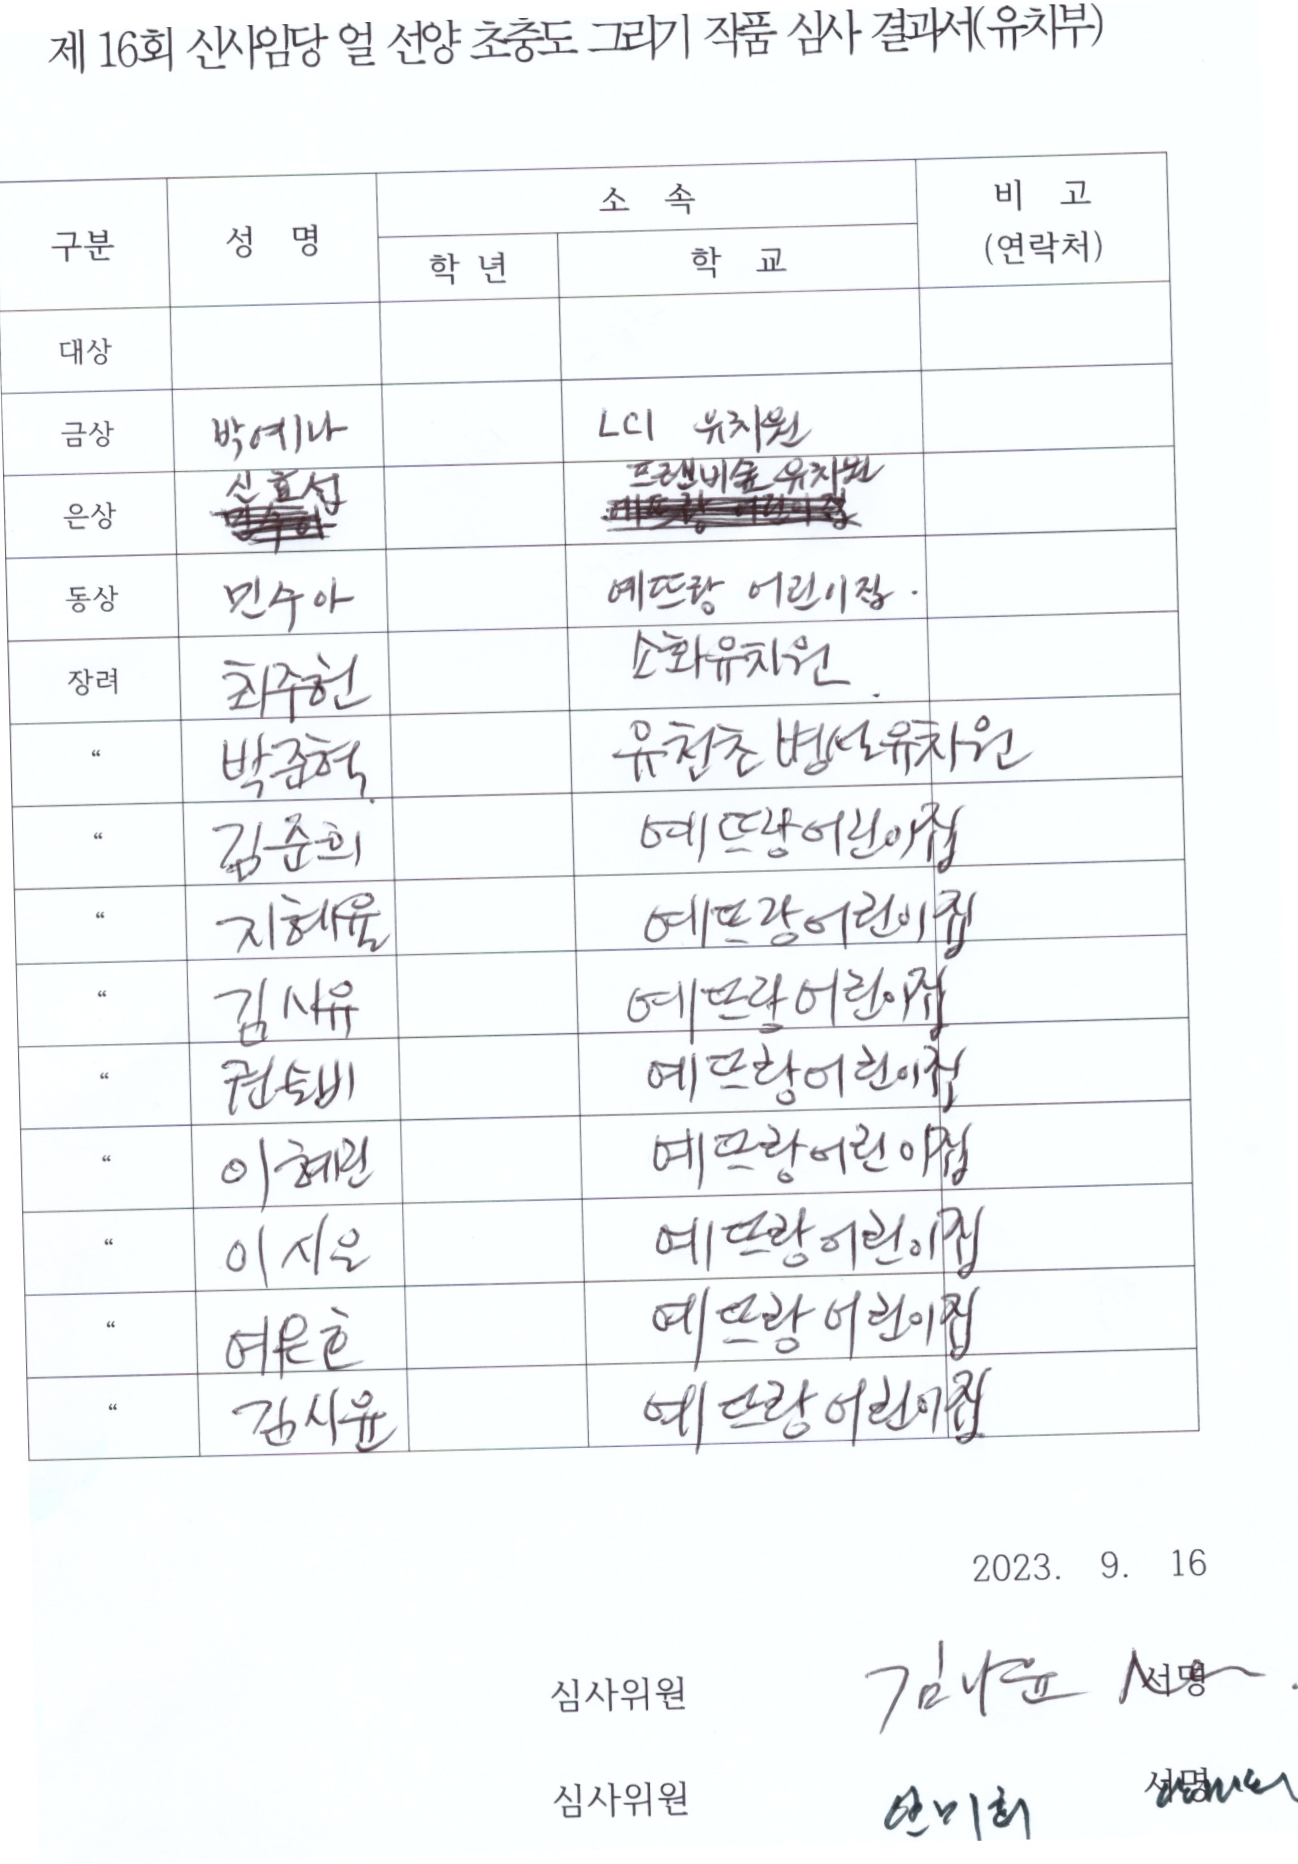 제 16회 신사임당 얼 선양 초충도 그리기 작품 심사 결과서(유치부)
구분 성 명 소 속 비 고
(연락처)
학 년 학 교
대상
금상 박예나 LCI 유치원
은상 신효섭 프렌비숲유치원
동상 민수아 예뜨랑 어린이집.
장려 최주헌 소화유치원.
“ 박준혁. 유천초병설유치원
“ 김준희 예뜨랑어린이집
“ 지혜율 예뜨랑어린이집
“ 김시유 예뜨랑어린이집
“ 권토비 예뜨랑어린이집
“ 이혜린 예뜨랑어린이집
“ 이시은 예뜨랑어린이집
“ 여은호 예뜨랑어린이집
“ 김시윤 예뜨랑어린이집
2023. 9. 16
심사위원 김나윤 서명
심사위원 안미희 서명